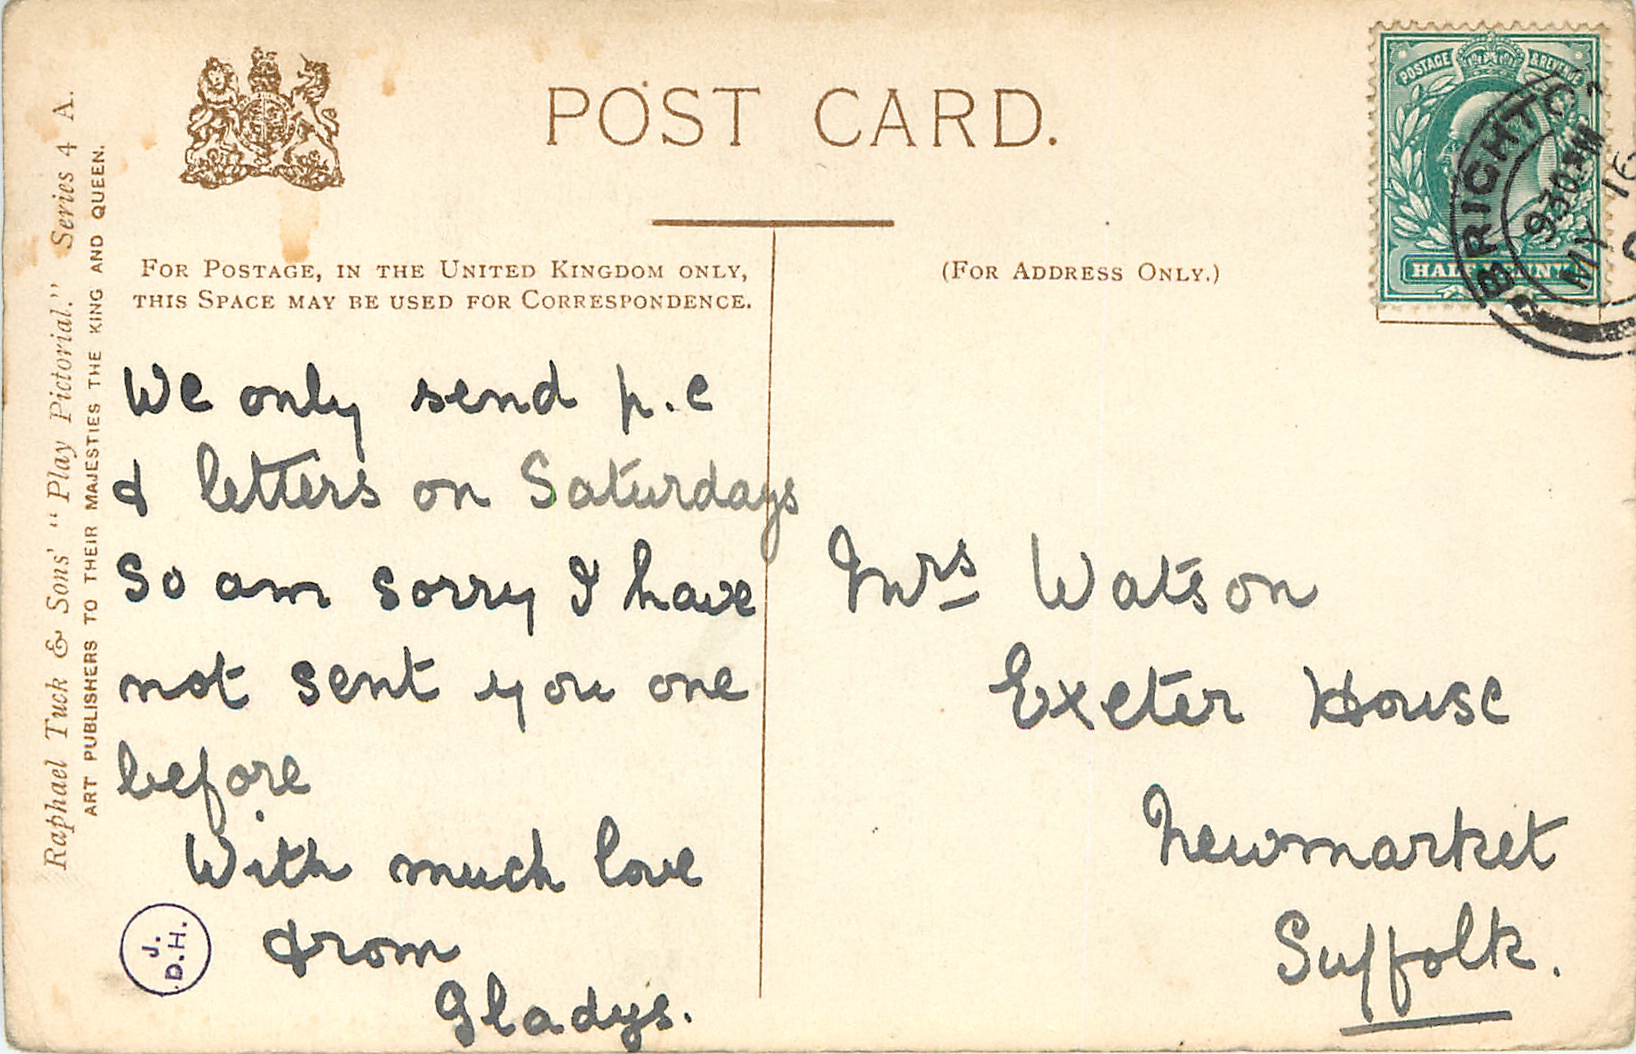 POST CARD.
FOR POSTAGE, IN THE UNITED KINGDOM ONLY,
THIS SPACE MAY BE USED FOR CORRESPONDENCE.
(FOR ADDRESS ONLY.)
Raphael Tuck & Sons' "Play Pictorial." Series 4 A.
ART PUBLISHERS TO THEIR MAJESTIES THE KING AND QUEEN.
We only send p.c
& letters on Saturdays
So am sorry I have
not sent you one
before
With much love
from
Gladys.
J.
D.H.
Mrs Watson
Exeter House
Newmarket
Suffolk.
POSTAGE & REVENUE
BRIGHTO
9 30 PM
MY 16